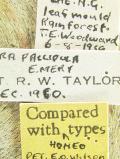 N.G.
leaf mould
Rainforest.
T.E. Woodward
6-8-1956
RA PALLIDULA
EMERY
T. R. W. TAYLOR
DEC. 1960.
Compared
with types
HOMEO
DET. E.O. Wilson